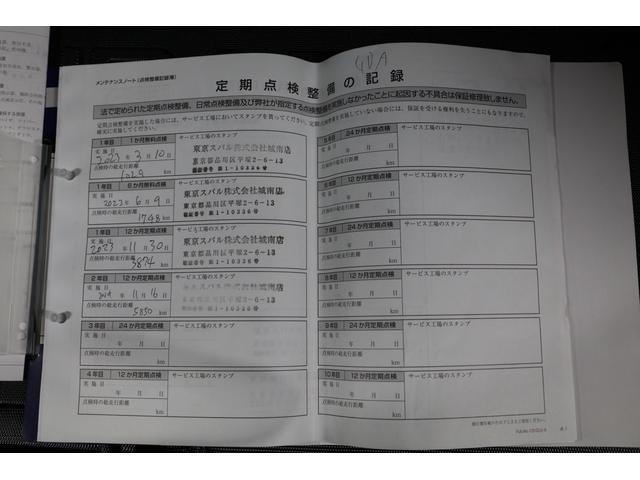 メンテナンスノート(点検整備記録簿)
定期点検整備の記録
法で定められた定期点検整備、日常点検整備及び弊社が指定する点検整備を実施しなかったことに起因する不具合は保証修理致しません。
定期点検整備を実施した場合には、サービス工場においてスタンプを貰ってください。
確実に実施してください。
1年目 1か月無料点検 サービス工場のスタンプ
実施日
2023年3月10日
点検時の総走行距離
1029 km
東京スバル株式会社城南店
東京都品川区平塚2-6-13
1年目 6か月無料点検 サービス工場のスタンプ
実施日
2023年6月9日
点検時の総走行距離
1748 km
東京スバル株式会社城南店
東京都品川区平塚2-6-13
認証番号 第1-10326号
1年目 12か月定期点検 サービス工場のスタンプ
実施日
2023年11月30日
点検時の総走行距離
3874 km
東京スバル株式会社城南店
東京都品川区平塚2-6-13
認証番号 第1-10326号
2年目 12か月定期点検 サービス工場のスタンプ
実施日
年11月16日
点検時の総走行距離
5850 km
スバル株式会社城南店
東京都品川区平塚2-6-13
3年目 24か月定期点検 サービス工場のスタンプ
実施日
年 月 日
点検時の総走行距離
km
4年目 12か月定期点検 サービス工場のスタンプ
実施日
年 月 日
点検時の総走行距離
km
24か月定期点検 サービス工場のスタンプ
実施日
年 月 日
点検時の総走行距離
km
12か月定期点検 サービス工場のスタンプ
実施日
年 月 日
点検時の総走行距離
km
7年目 24か月定期点検 サービス工場のスタンプ
実施日
年 月 日
点検時の総走行距離
km
8年目 12か月定期点検 サービス工場のスタンプ
実施日
年 月 日
点検時の総走行距離
km
9年目 24か月定期点検 サービス工場のスタンプ
実施日
年 月 日
点検時の総走行距離
km
10年目 12か月定期点検 サービス工場のスタンプ
実施日
年 月 日
点検時の総走行距離
km